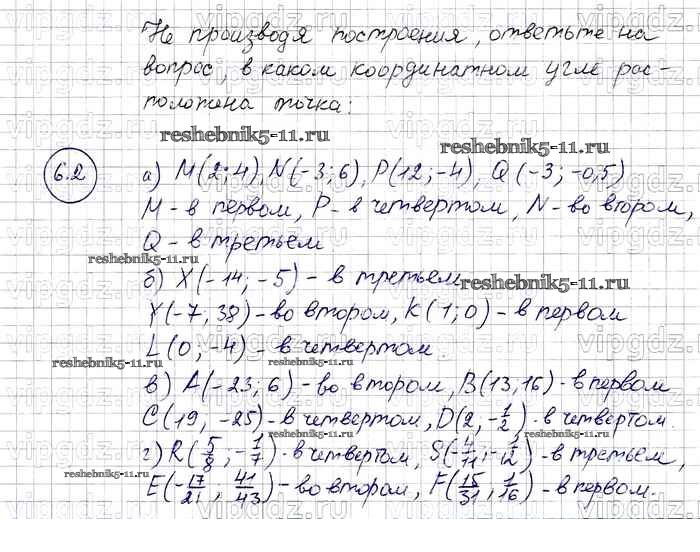 Не производя построения, ответьте на
вопрос, в каком координатном угле рас-
положена точка:
reshebnik5-11.ru
reshebnik5-11.ru
6.2 а) M(2;4), N(-3;6), P(12;-4), Q(-3;-0,5)
M - в первом, P - в четвертом, N - во втором,
Q - в третьем.
reshebnik5-11.ru
б) X(-14;-5) - в третьем
reshebnik5-11.ru
Y(-7,38) - во втором, K(1;0) - в первом
L(0;-4) - в четвертом.
reshebnik5-11.ru
reshebnik5-11.ru
в) A(-23;6) - во втором, B(13,16) - в первом
C(19,-25) - в четвертом, D(2,-1/2) - в четвертом.
reshebnik5-11.ru
reshebnik5-11.ru
г) R(5/8;-1/7) - в четвертом, S(-4/11;-1/12) - в третьем,
reshebnik5-11.ru
E(-17/21;41/43) - во втором, F(15/31;1/16) - в первом.
vipgdz.ru